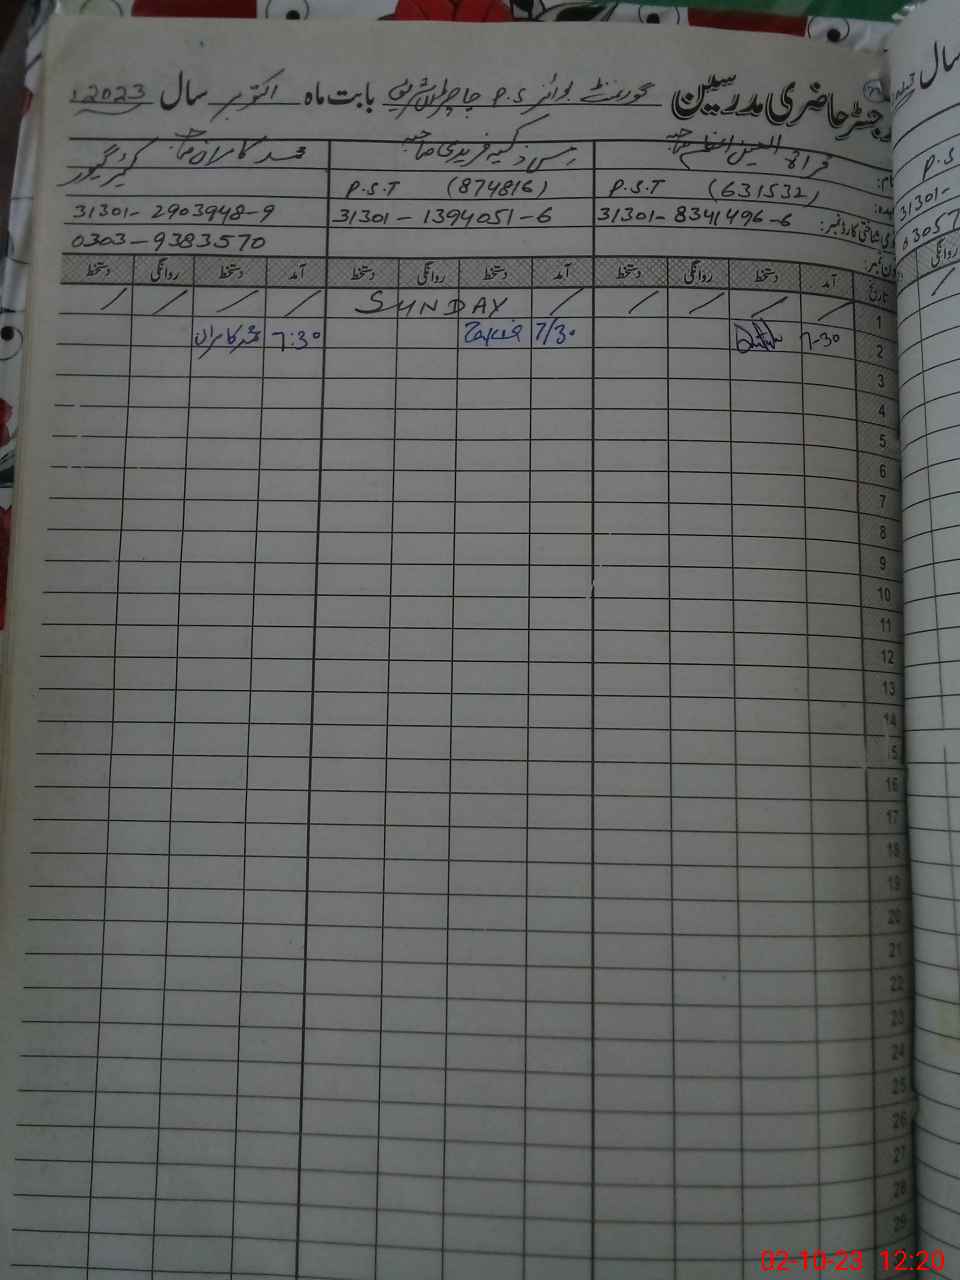 رجسٹر حاضری مدرسین گورنمنٹ بوائز P.S چاچڑاں شریف بابت ماہ اکتوبر سال 2023
مس ذکیہ فریدی صاحبہ محمد کامران صاحب
P.S.T (631532) P.S.T (874816) کیئر گیور
31301-8341496-6 31301-1394051-6 31301-2903948-9
0303-9383570
تاریخ آمد دستخط روانگی دستخط آمد دستخط روانگی دستخط آمد دستخط روانگی دستخط
1 / / / / / SUNDAY / / / /
2 7-30 7/30 Zakia 7:30 محمد کامران
3
4
5
6
7
8
9
10
11
12
13
14
15
16
17
18
19
20
21
22
23
24
25
26
27
28
29
سال
P.S
31301-
03057
روانگی
02-10-23 12:20